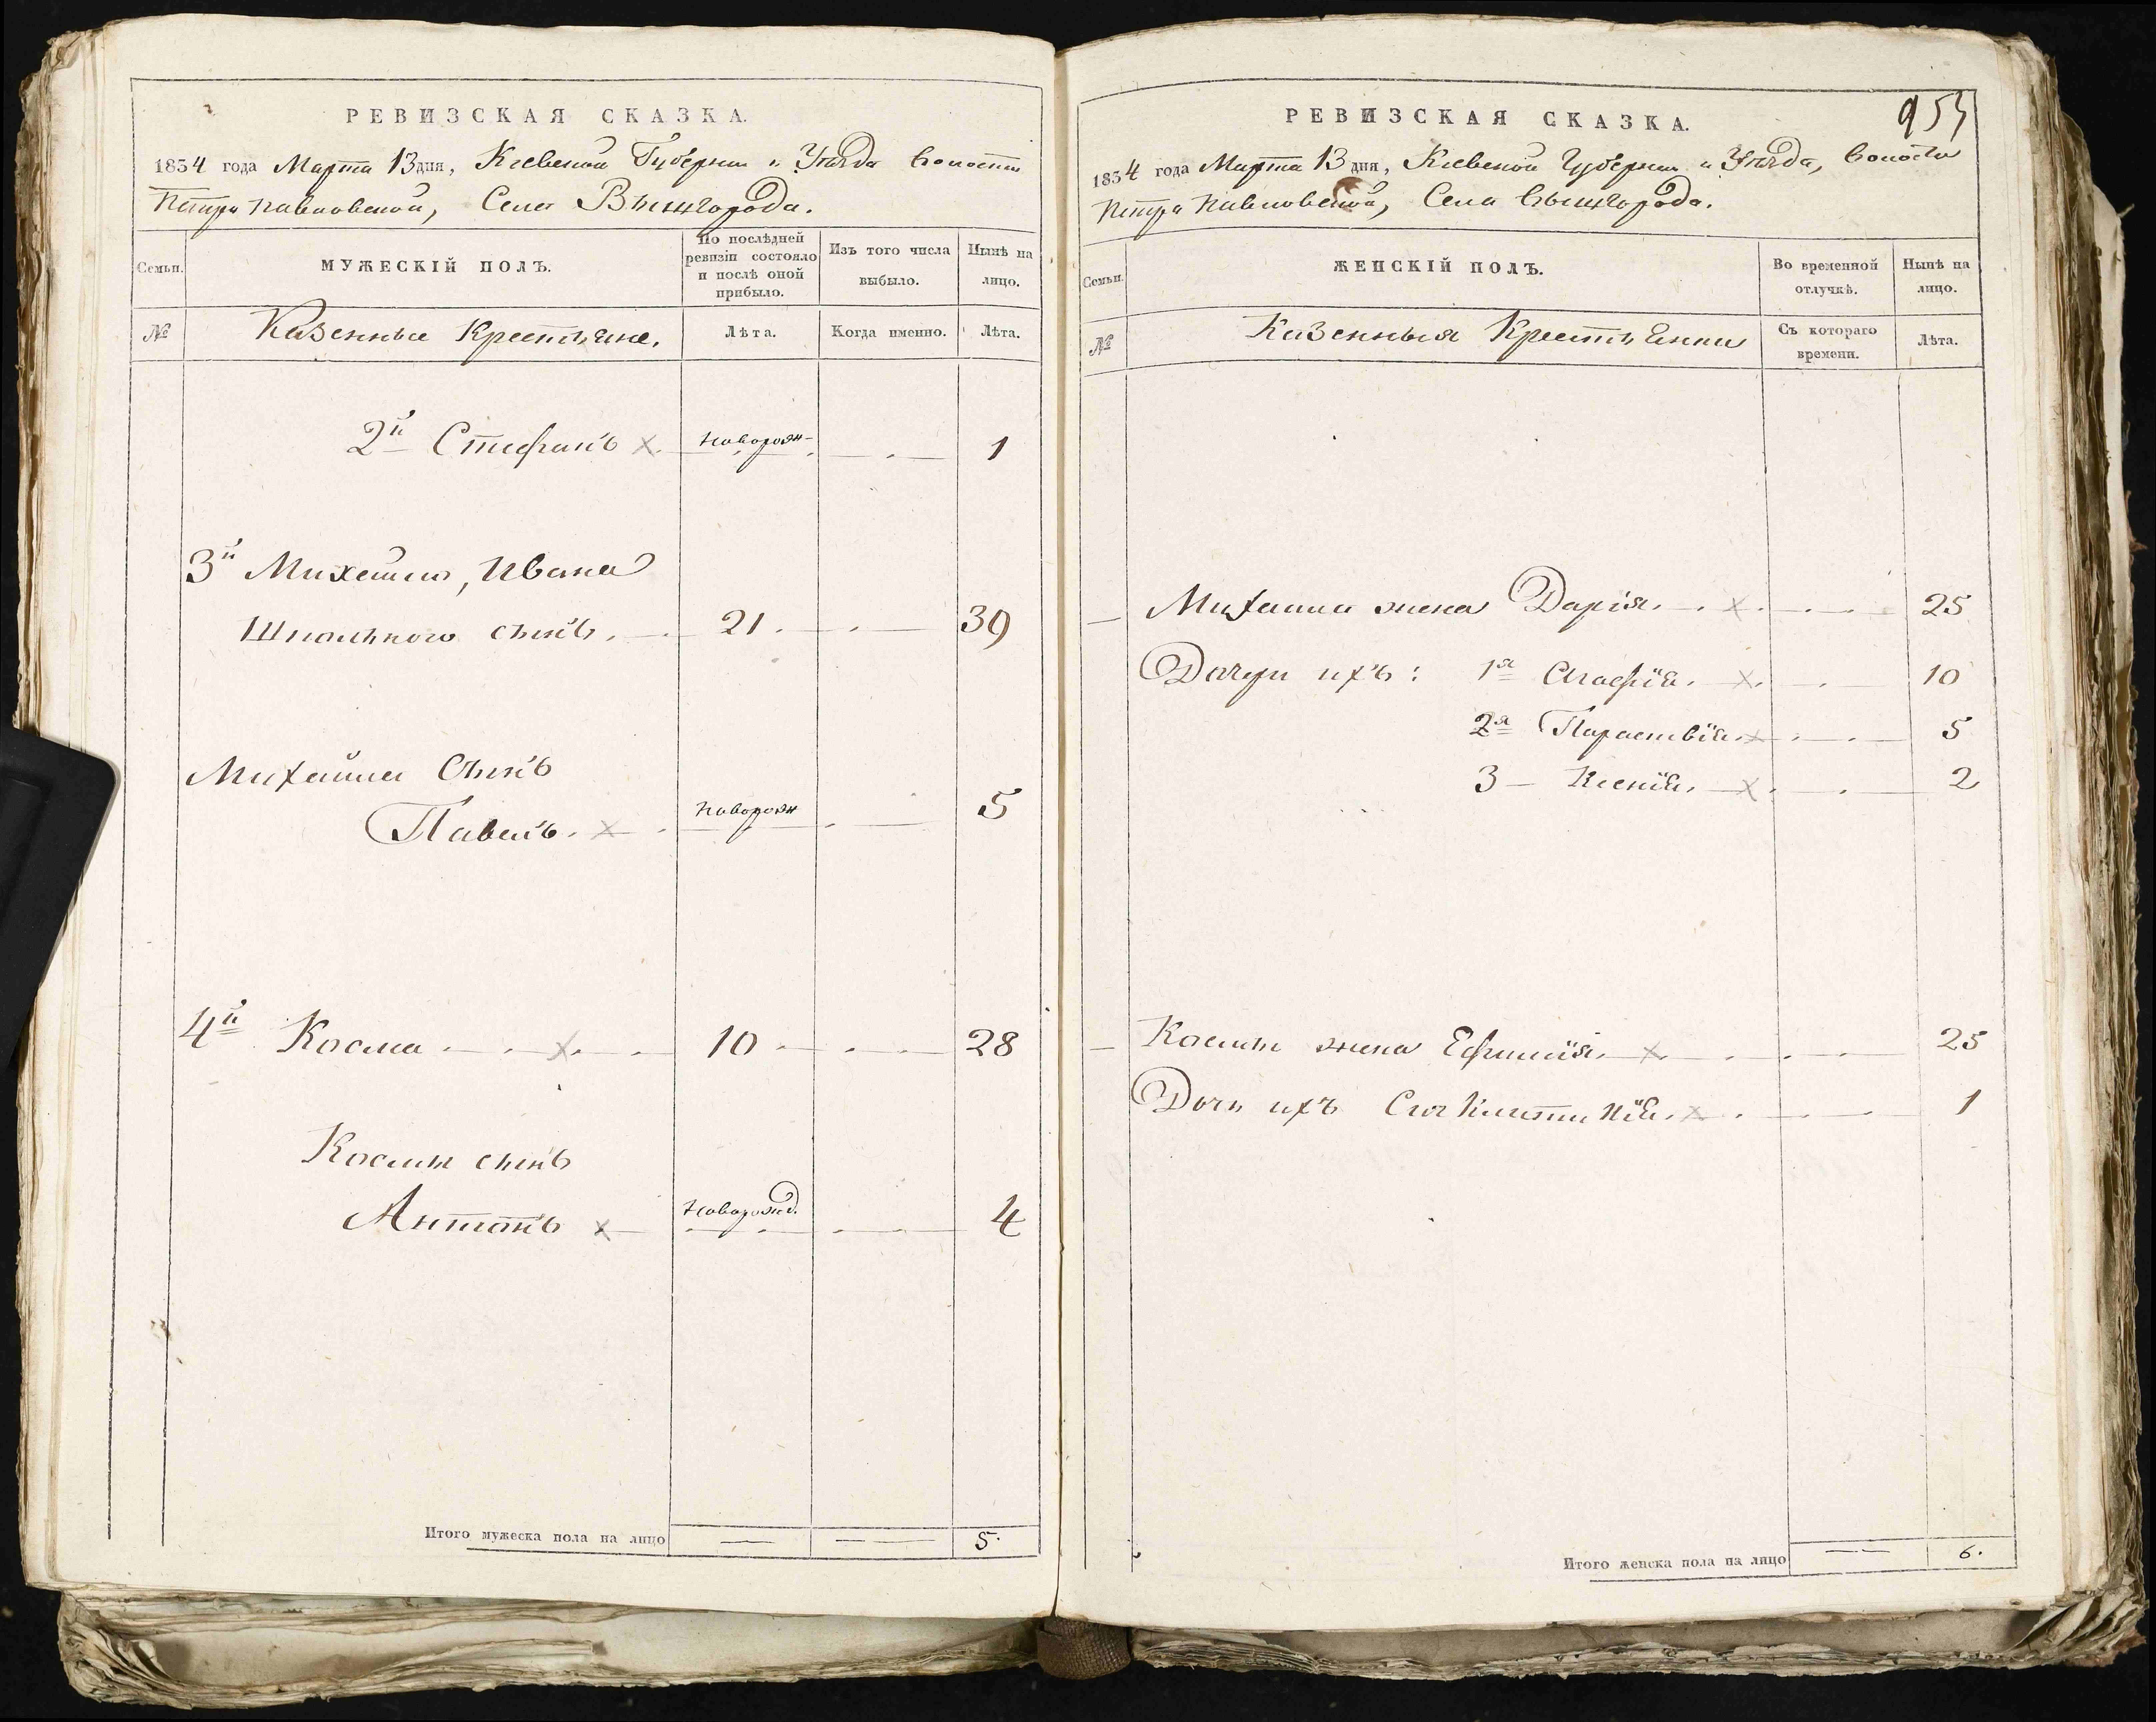 РЕВИЗСКАЯ СКАЗКА.
1834 года Марта 13 дня, Кіевской Губерніи и Уѣзда Волости
Петро Павловской, Села Вышгорода.
Семьи.
МУЖЕСКІЙ ПОЛЪ.
По послѣдней ревизіи состояло и послѣ оной прибыло.
Изъ того числа выбыло.
Нынѣ на лицо.
№
Казенные Крестьяне.
Лѣта.
Когда именно.
Лѣта.
2й Стефанъ новорож- 1
3й Михайло, Ивана
сынъ. 21. 39
Михайла Сынъ
Павелъ. новорож 5
4й Косма 10 28
Космы сынъ
Антонъ новорожд. 4
Итого мужеска пола на лицо 5.
953
РЕВИЗСКАЯ СКАЗКА.
1834 года Марта 13 дня, Кіевской Губерніи и Уѣзда, Волости
Петро Павловской, Села Вышгорода.
Семьи.
ЖЕНСКІЙ ПОЛЪ.
Во временной отлучкѣ.
Нынѣ на лицо.
№
Казенныя Крестьянки
Съ котораго времени.
Лѣта.
Михайла жена Дарія. 25
Дочери ихъ: 1я Агафія. 10
2я Параскевія. 5
3 – Ксенія. 2
Космы жена Ефимія. 25
Дочь ихъ 1
Итого женска пола на лицо 6.